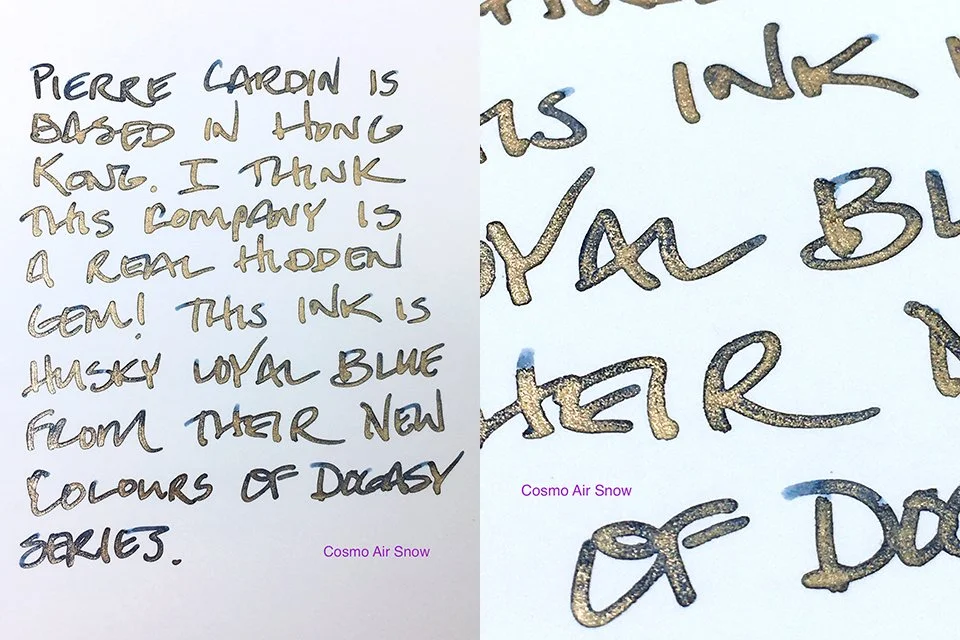 PIERRE CARDIN IS
BASED IN HONG
KONG. I THINK
THIS COMPANY IS
A REAL HIDDEN
GEM! THIS INK IS
HUSKY LOYAL BLUE
FROM THEIR NEW
COLOURS OF DOGASY
SERIES.
Cosmo Air Snow
IS INK
OYAL BL
HEIR N
Cosmo Air Snow
OF DO